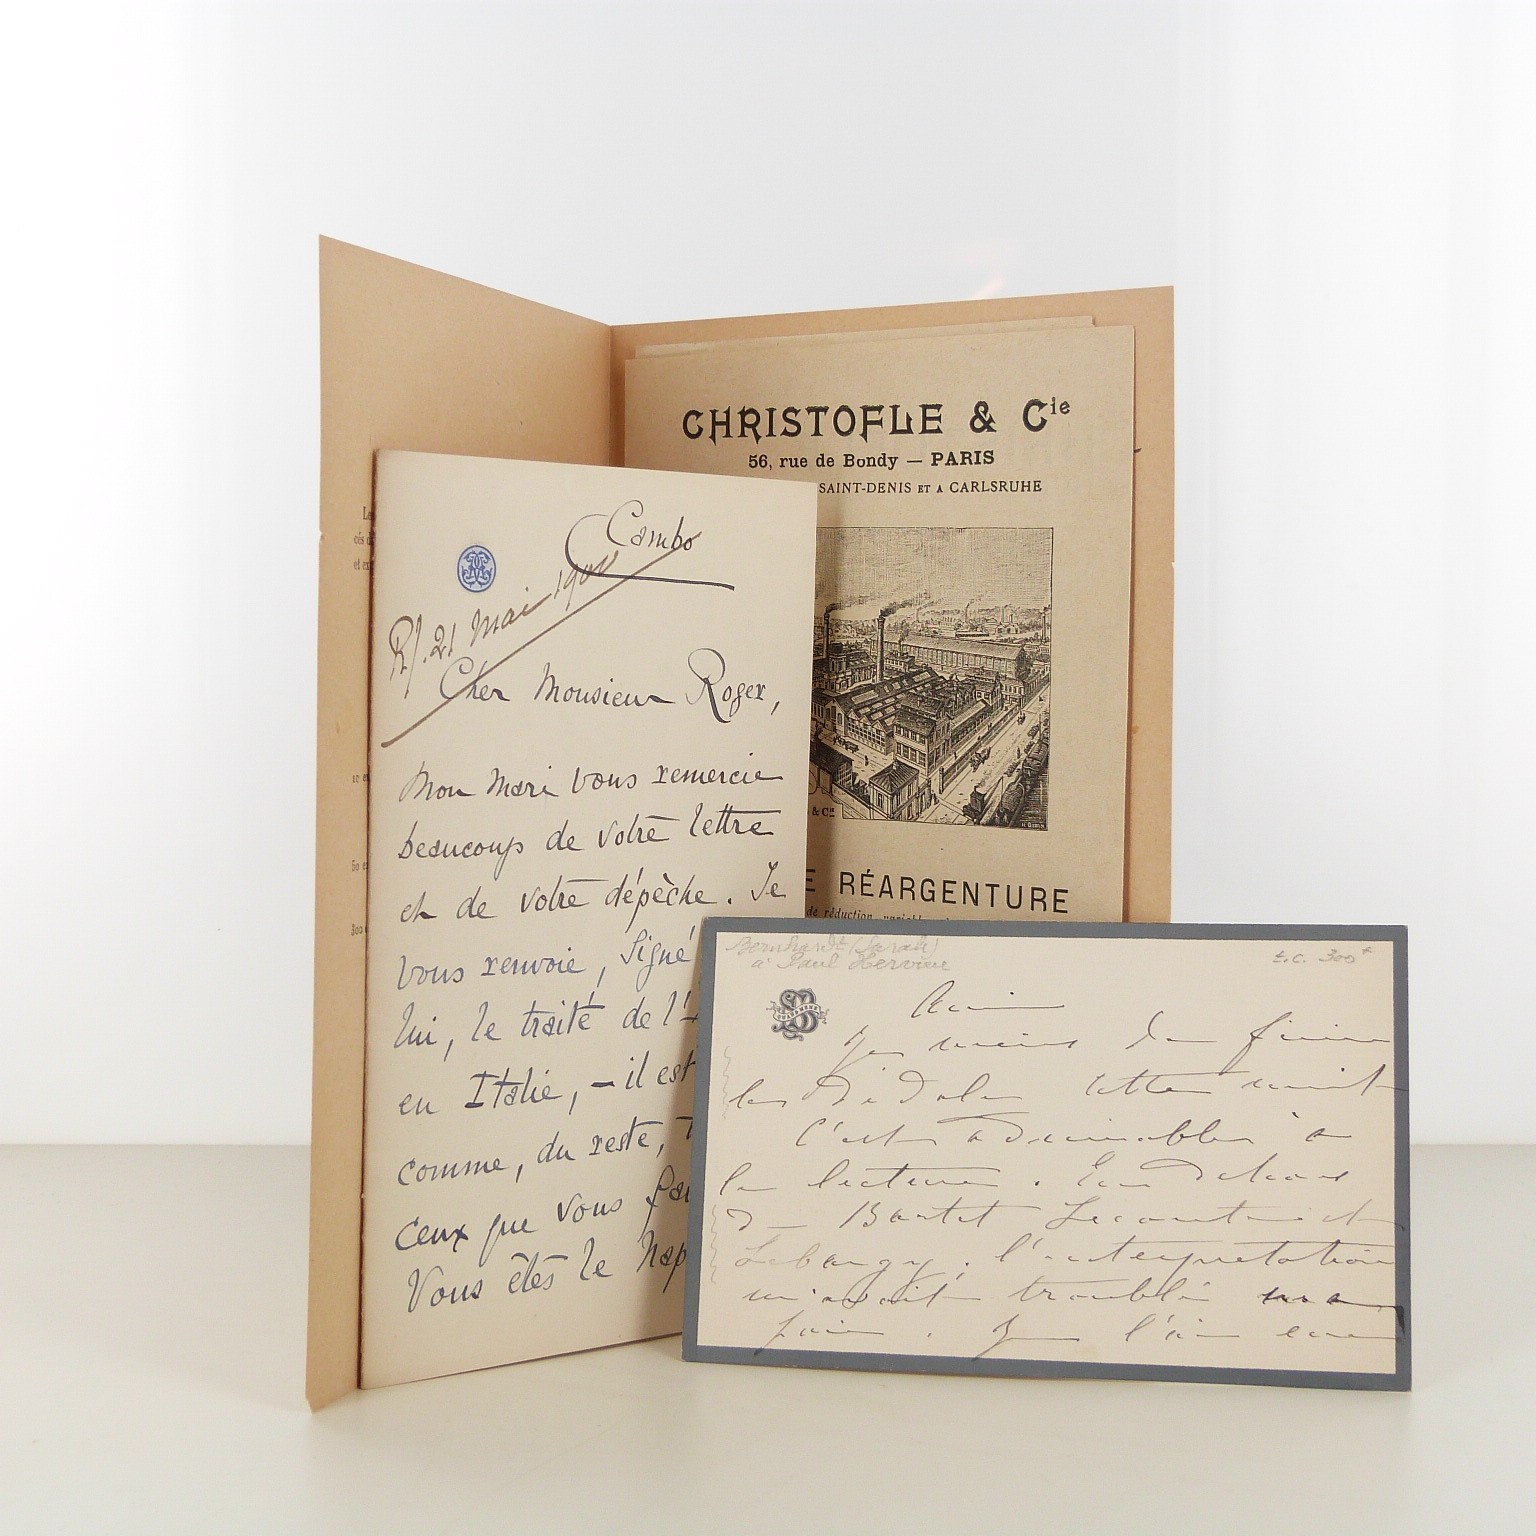 CHRISTOFLE & Cie
56, rue de Bondy — PARIS
SAINT-DENIS ET A CARLSRUHE
& Cie
E RÉARGENTURE
de réduction
Cambo
R/. 21 mai 190
Cher Monsieur Roger,
Mon mari vous remercie
beaucoup de votre lettre
et de votre dépêche. Je
vous renvoie, signé
lui, le traité de l'
en Italie, — il est
comme, du reste, t
ceux que vous fai
Vous êtes le Nap
Bernhardt (Sarah)
à Paul Hervieu
t.c. 300f
QUAND MEME
Ami
Je viens de finir
le Dédale cette nuit
c'est admirable à
la lecture. En dehors
de Bartet
Lebargy, l'interprétation
m'avait troublé
Je l'ai